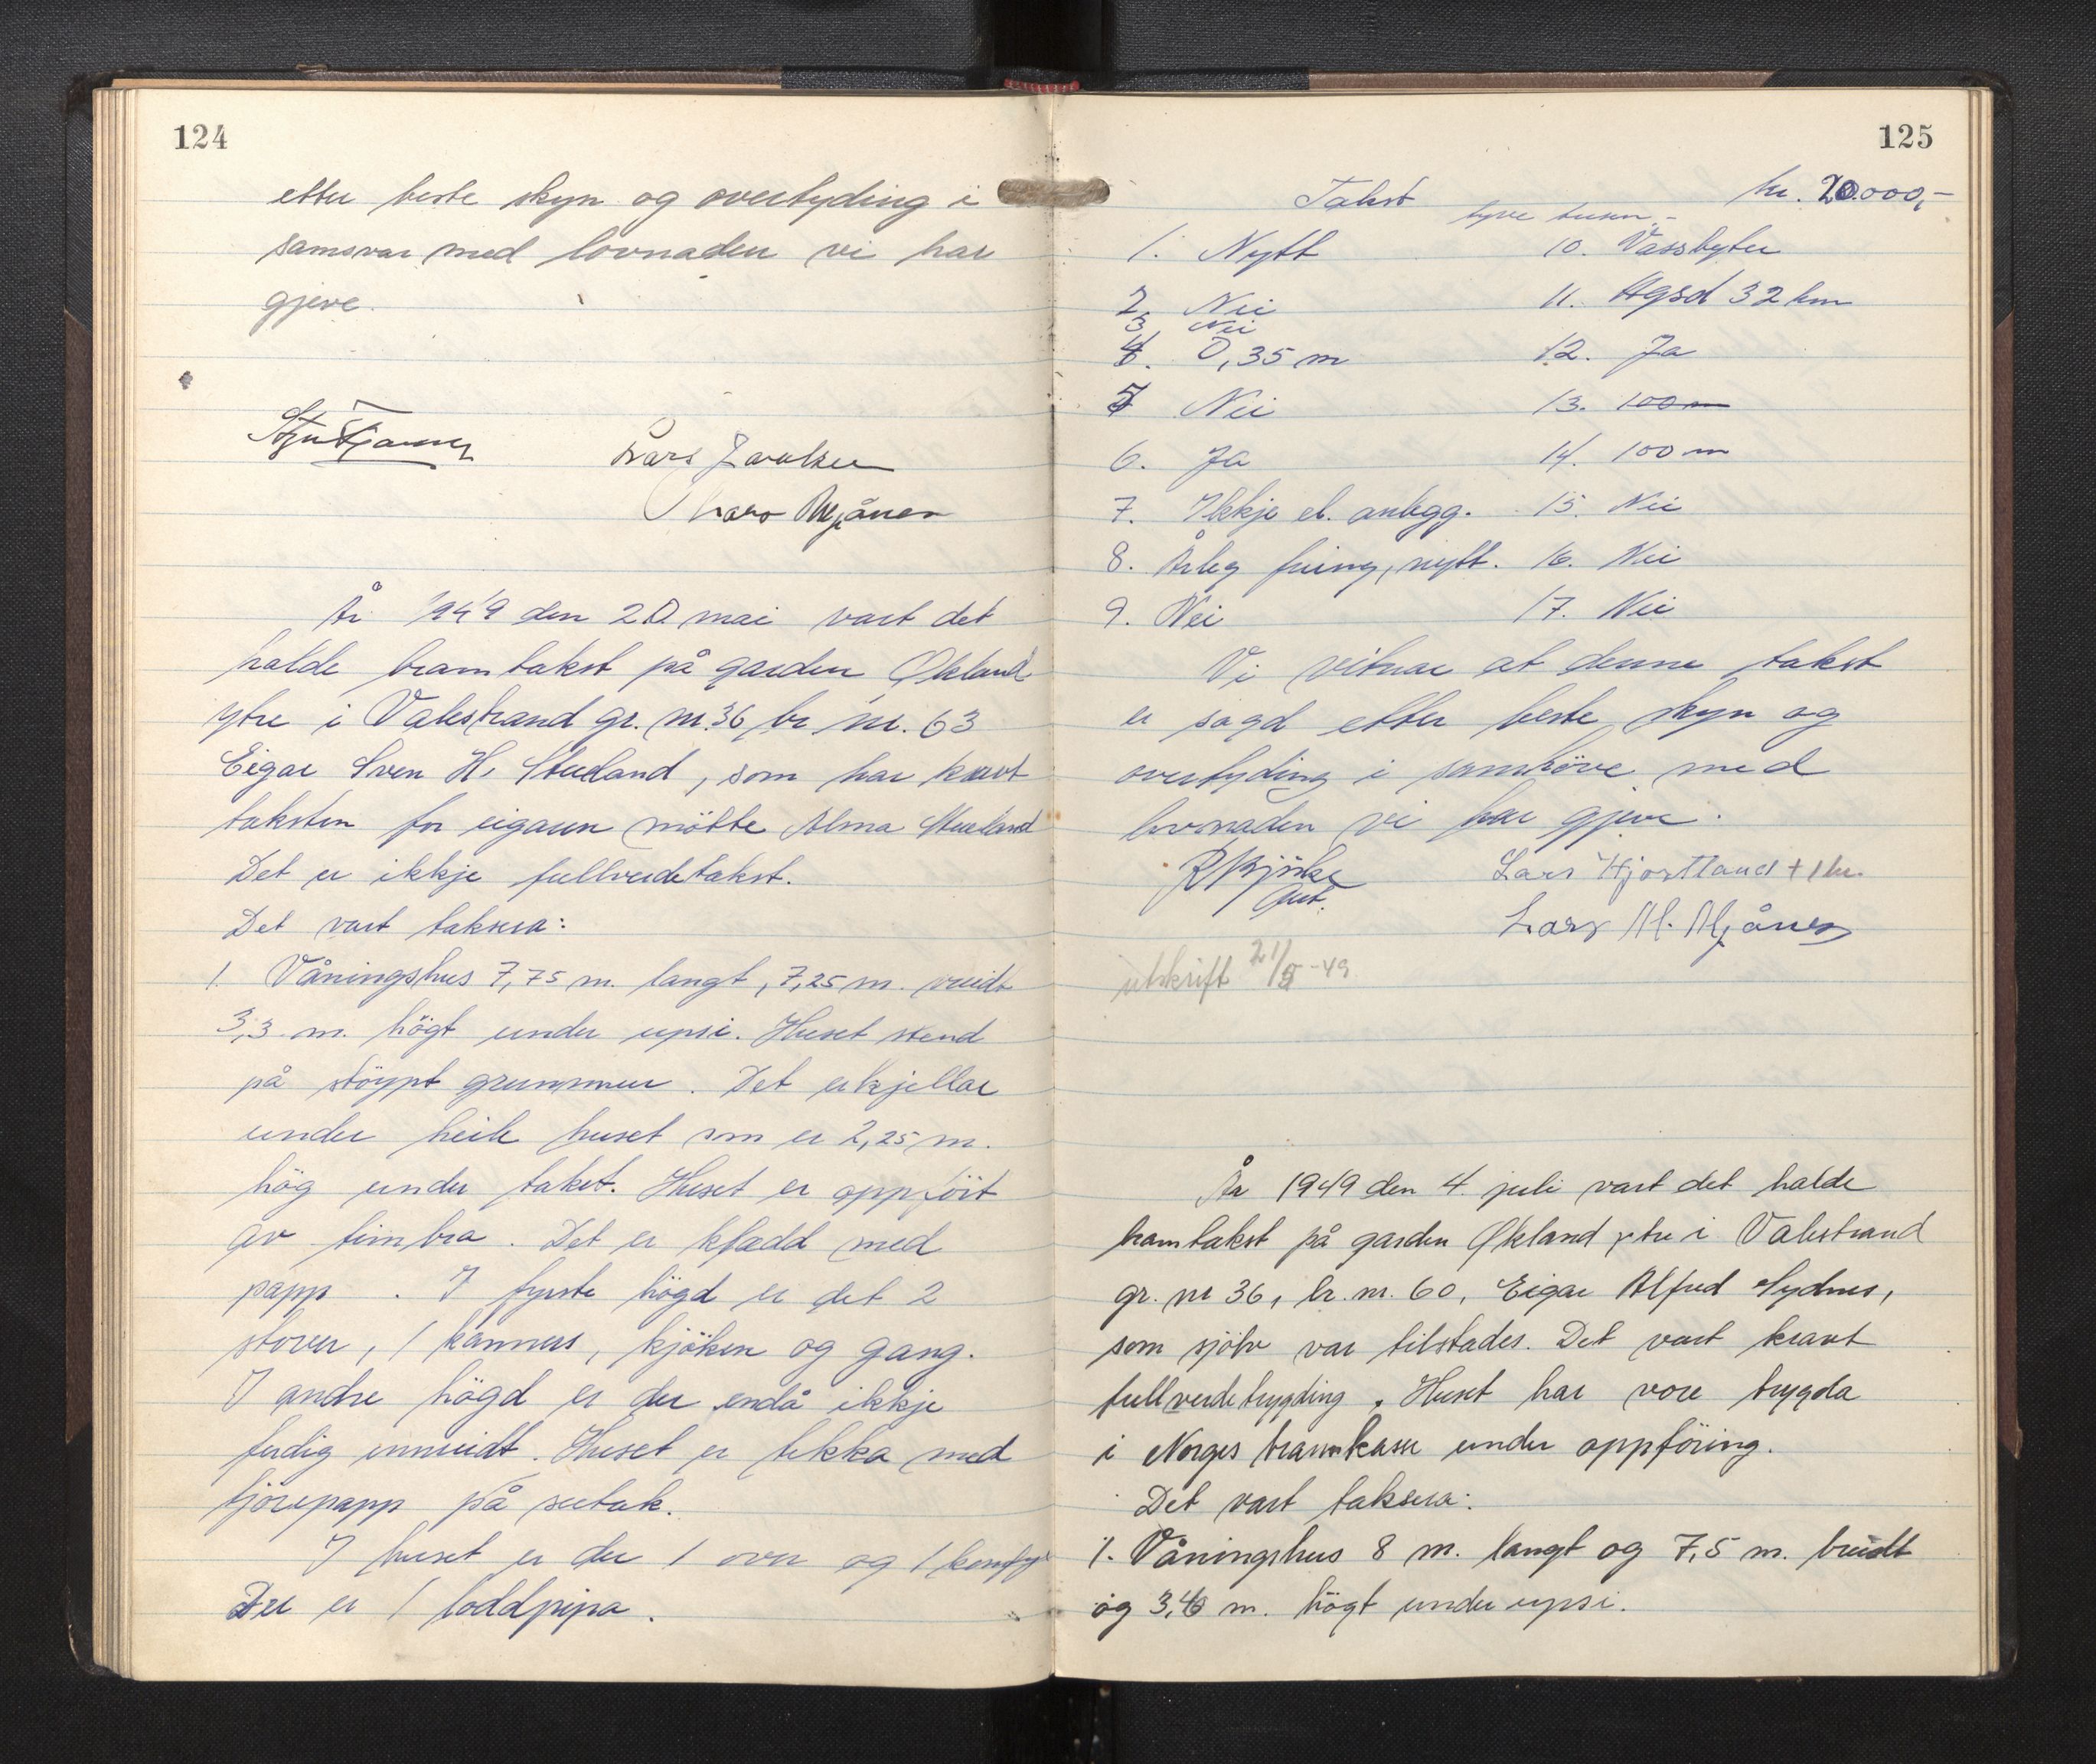 124
etter beste skyn og overtyding i
samsvar med lovnaden vi har
gjeve.
Lars
År 1949 den 20 mai vart det
halde branntakst på garden Økland
ytre i Valestrand gr. nr. 36 br nr. 63
Eigar Sven H. Stueland, som har kravt
taksten for eigaren møtte Alma Stueland
Det er ikkje fullverdetakst.
Det vart taksera:
1. Våningshus 7,75 m. langt, 7,25 m. breidt
3,3 m. högt under upsi. Huset stend
på stöypt grunnmur. Det er kjellar
under heile huset som er 2,25 m.
hög under taket. Huset er oppfört
av timbra. Det er klædd med
papp. I fyrste högd er det 2
stover, 1 kammers, kjöken og gang.
I andre högd er der endå ikkje
ferdig innreidt. Huset er tekka med
tjörepapp på sutak.
I huset er der 1 ovn og 1 komfyr
Der er 1 loddpipa.
125
Takst kr. 20.000,-
tyve tusen -
1. Nytt 10. Vassbytter
2. Nei 11. Agsd 32 km
3. Nei
4. 0,35 m 12. Ja
5 Nei 13. 100 m
6. Ja 14. 100 m
7. Ikkje el. anlegg. 15. Nei
8. Årleg feiing, nytt. 16. Nei
9. Nei 17. Nei
Vi vitnar at denne takst
er sagd etter beste skyn og
overtyding i samhöve med
lovnaden vi har gjeve.
Lars Hjortland + 1 kr.
Lars M. Mjånes
utskrift 21/5-49
År 1949 den 4. juli vart det halde
branntakst på garden Økland ytre i Valestrand
gr. nr 36, br. nr. 60, Eigar Alfred Sydnes,
som sjölv var tilstades. Det vart kravt
fullverdetrygding. Huset har vore trygda
i Norges brannkasse under oppföring.
Det vart taksera:
1. Våningshus 8 m. langt og 7,5 m. breidt
og 3,40 m. högt under upsi.